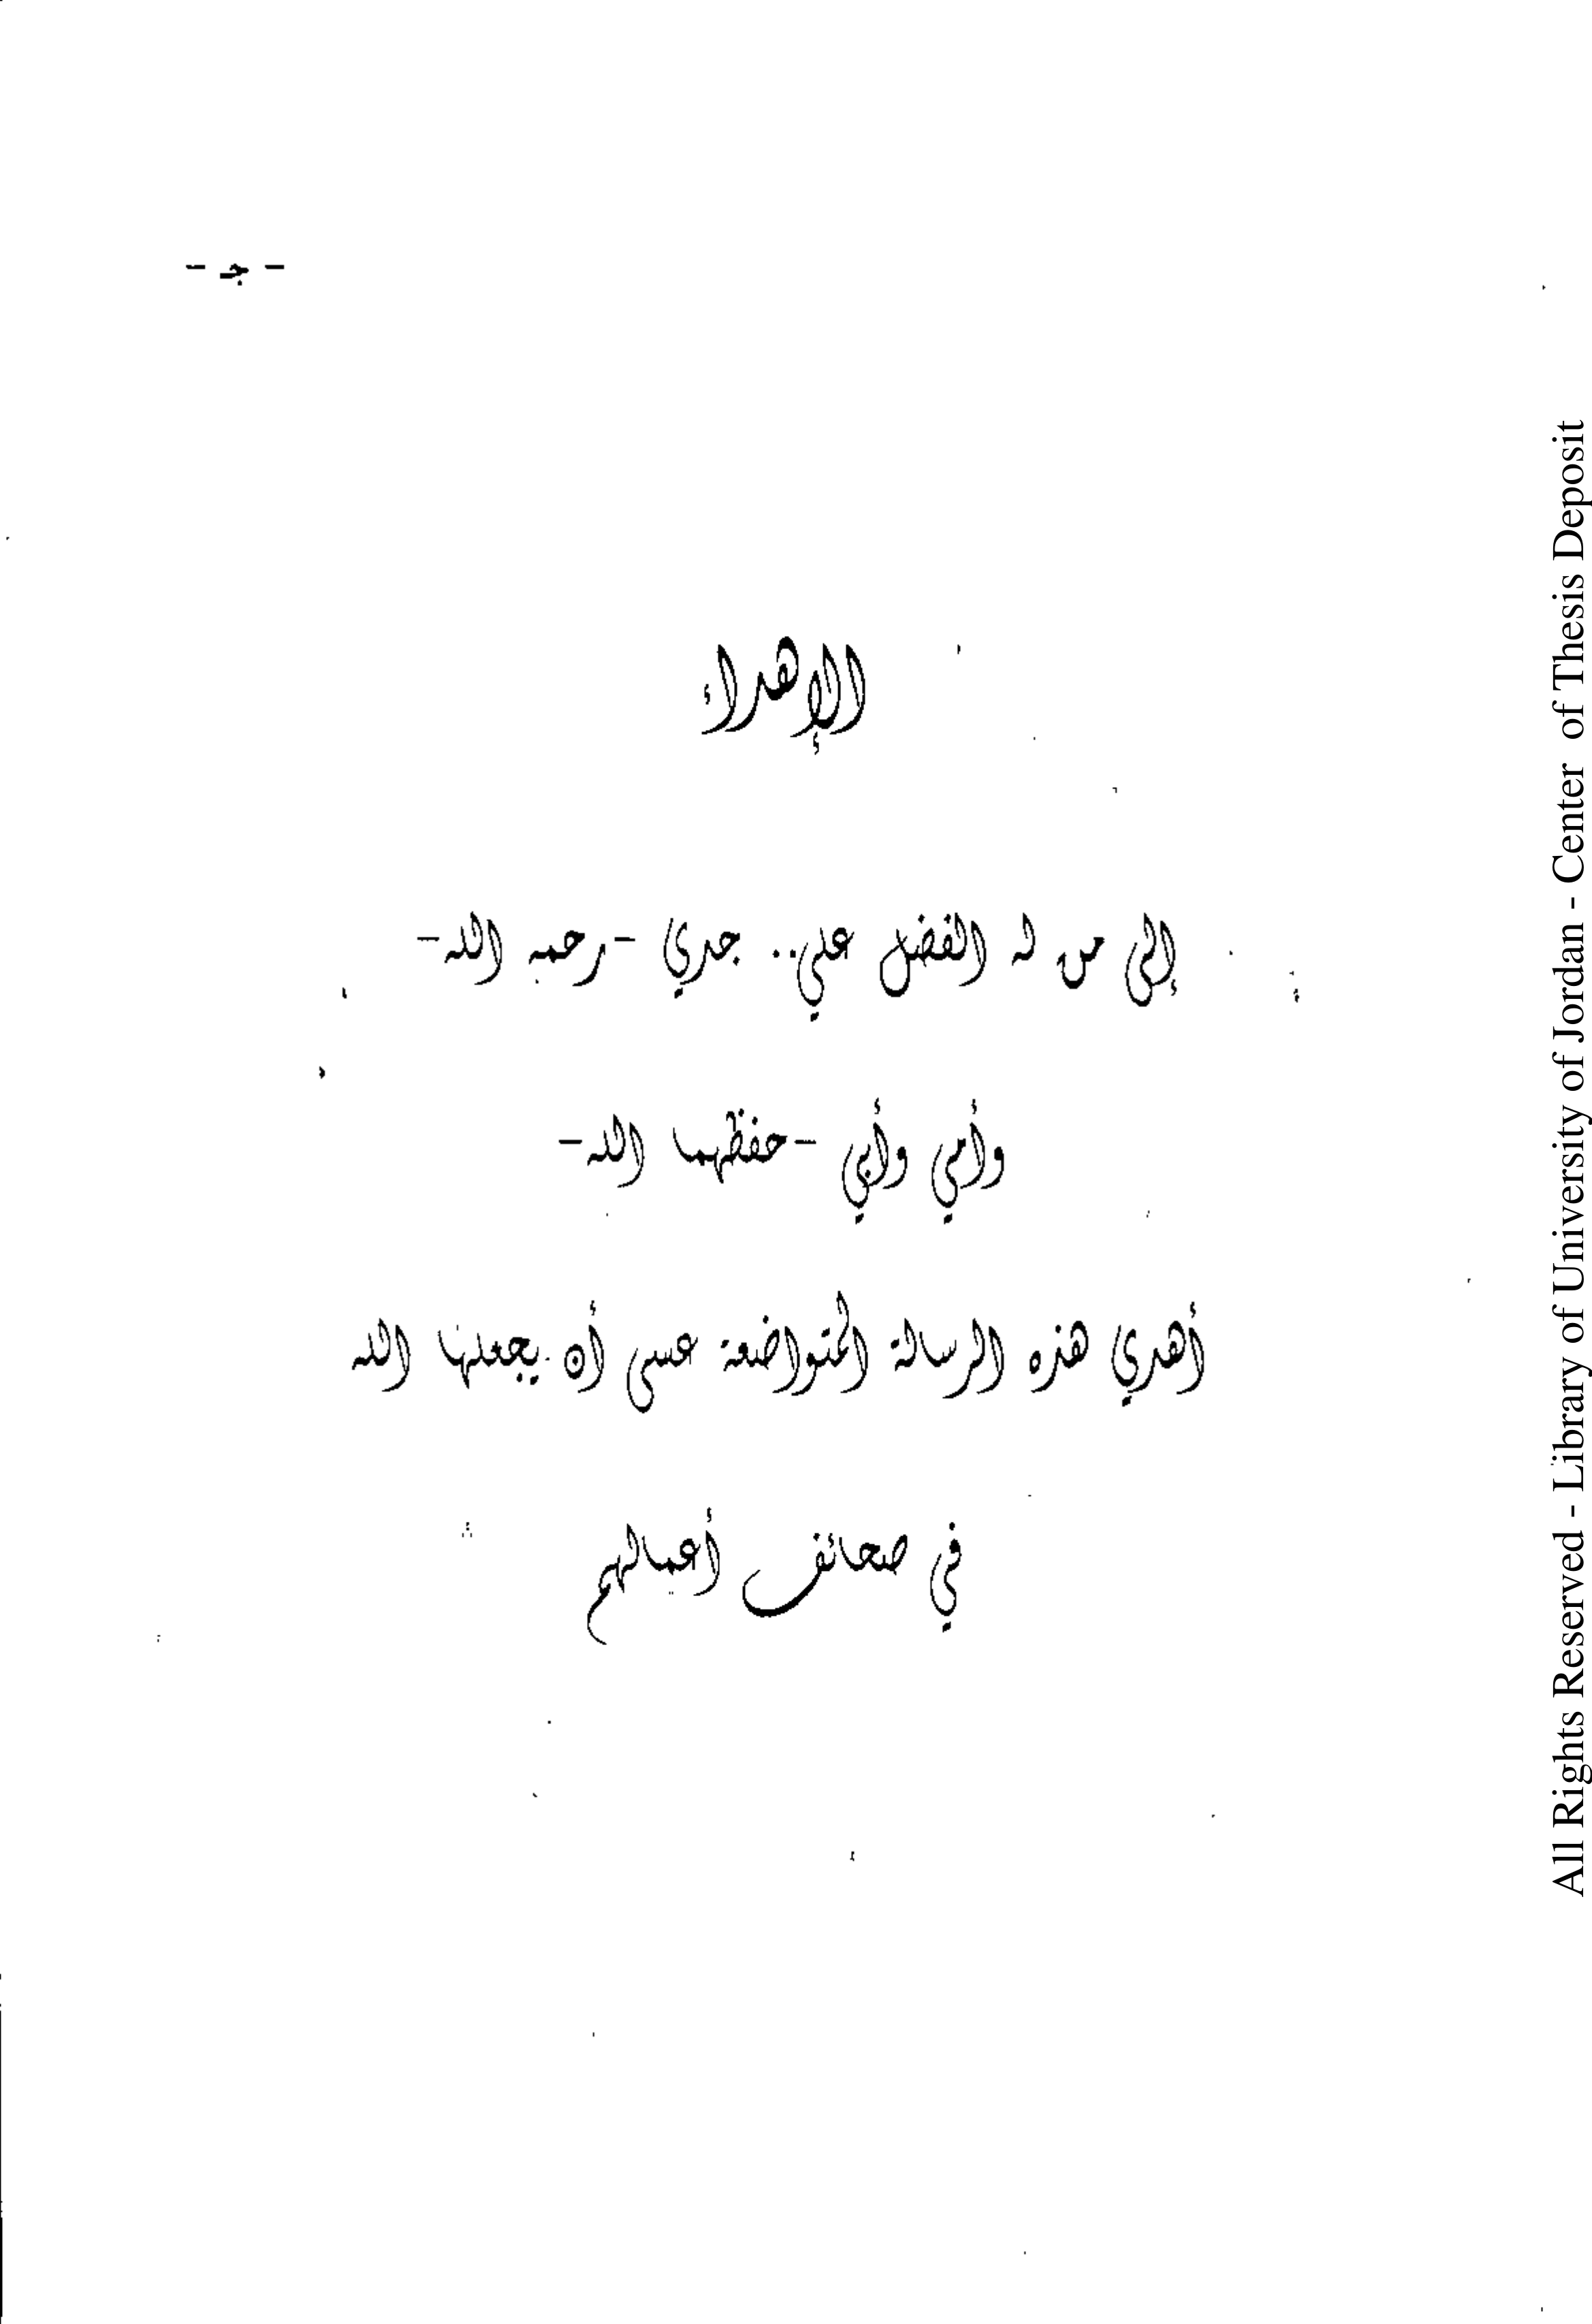 - جـ -
الإهداء
إلى من له الفضل علي.. جدي -رحمه الله-
وأمي وأبي -حفظهما الله-
أهدي هذه الرسالة المتواضعة عسى أن يجعلها الله
في صحائف أعمالهم
All Rights Reserved - Library of University of Jordan - Center of Thesis Deposit